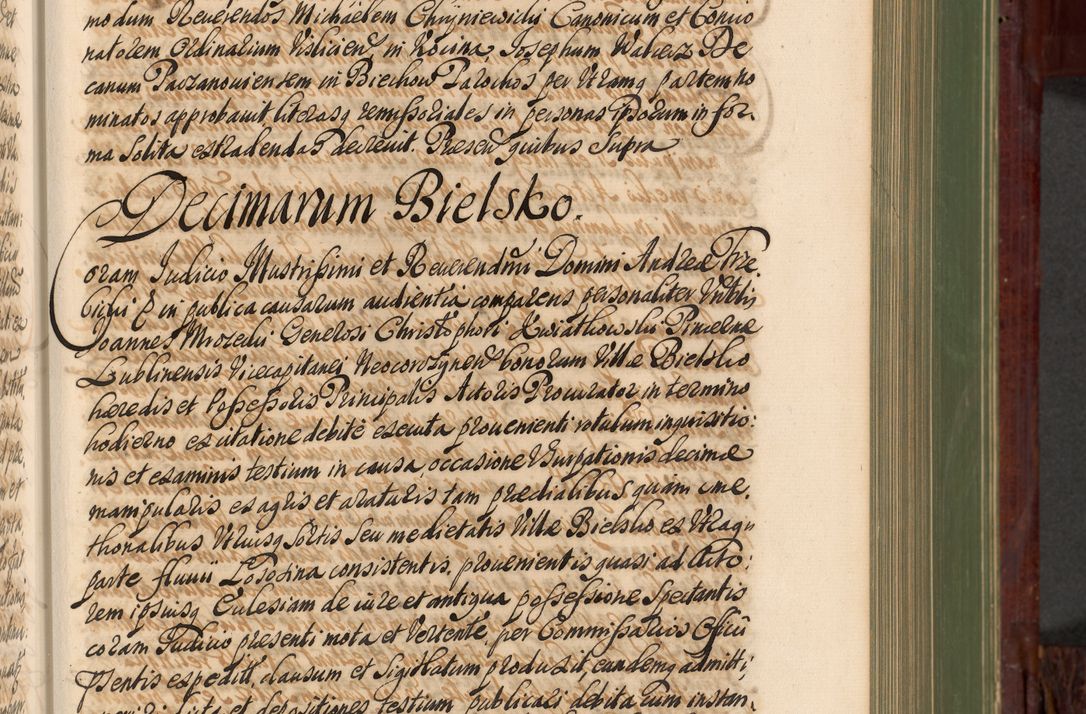 modum Reverendos Michaelem Chryniewicki Canonicum et Concio
natorem Ordinarium Vislicien̄ in Rocina, Josephum Walierz De
canum Paczanouiensem in Biechow Parochos per Utramq partem no
minatos approbauit literasq remissoriales in personas ipsorum in for
ma solita extradendas decreuit. Praesen̄ quibus Supra
Decimarum Bielsko.
Coram Judicio Illustrissimi et Reuerendm̄i Domini Andreae Trze:
bicki & in publica causarum audientia comparens personaliter Nobilis
Joannes Mrozecki Generosi Christophori Kwiatkowski Pincernae
Lublinensis Vicecapitanei Neocorczynen̄ bonorum Villae Bielsko
haeredis et Possessoris Principalis Actoris Procurator in termino
hodierno ex citatione debite executa prouenienti rotulum inquisitio:
nis et examinis testium in causa, occasione Usurpationis decimae
manipularis ex agris et araturis tam praedialibus quam cme.
thonalibus Utriusq sortis seu medietatis Villae Bielsko ex Utraqu
parte fluuii Łososina consistentis, prouenientis quasi ad Acto:
rem ipsiusq Ecclesiam de iure et antiqua possessione Spectantis
coram Judicio praesenti mota et Vertente, per Commissarios Officii
psentis expedit, clausum et Sigillatum produxit, eundemq admitti,
et depositiones testium publicari debita cum instan.